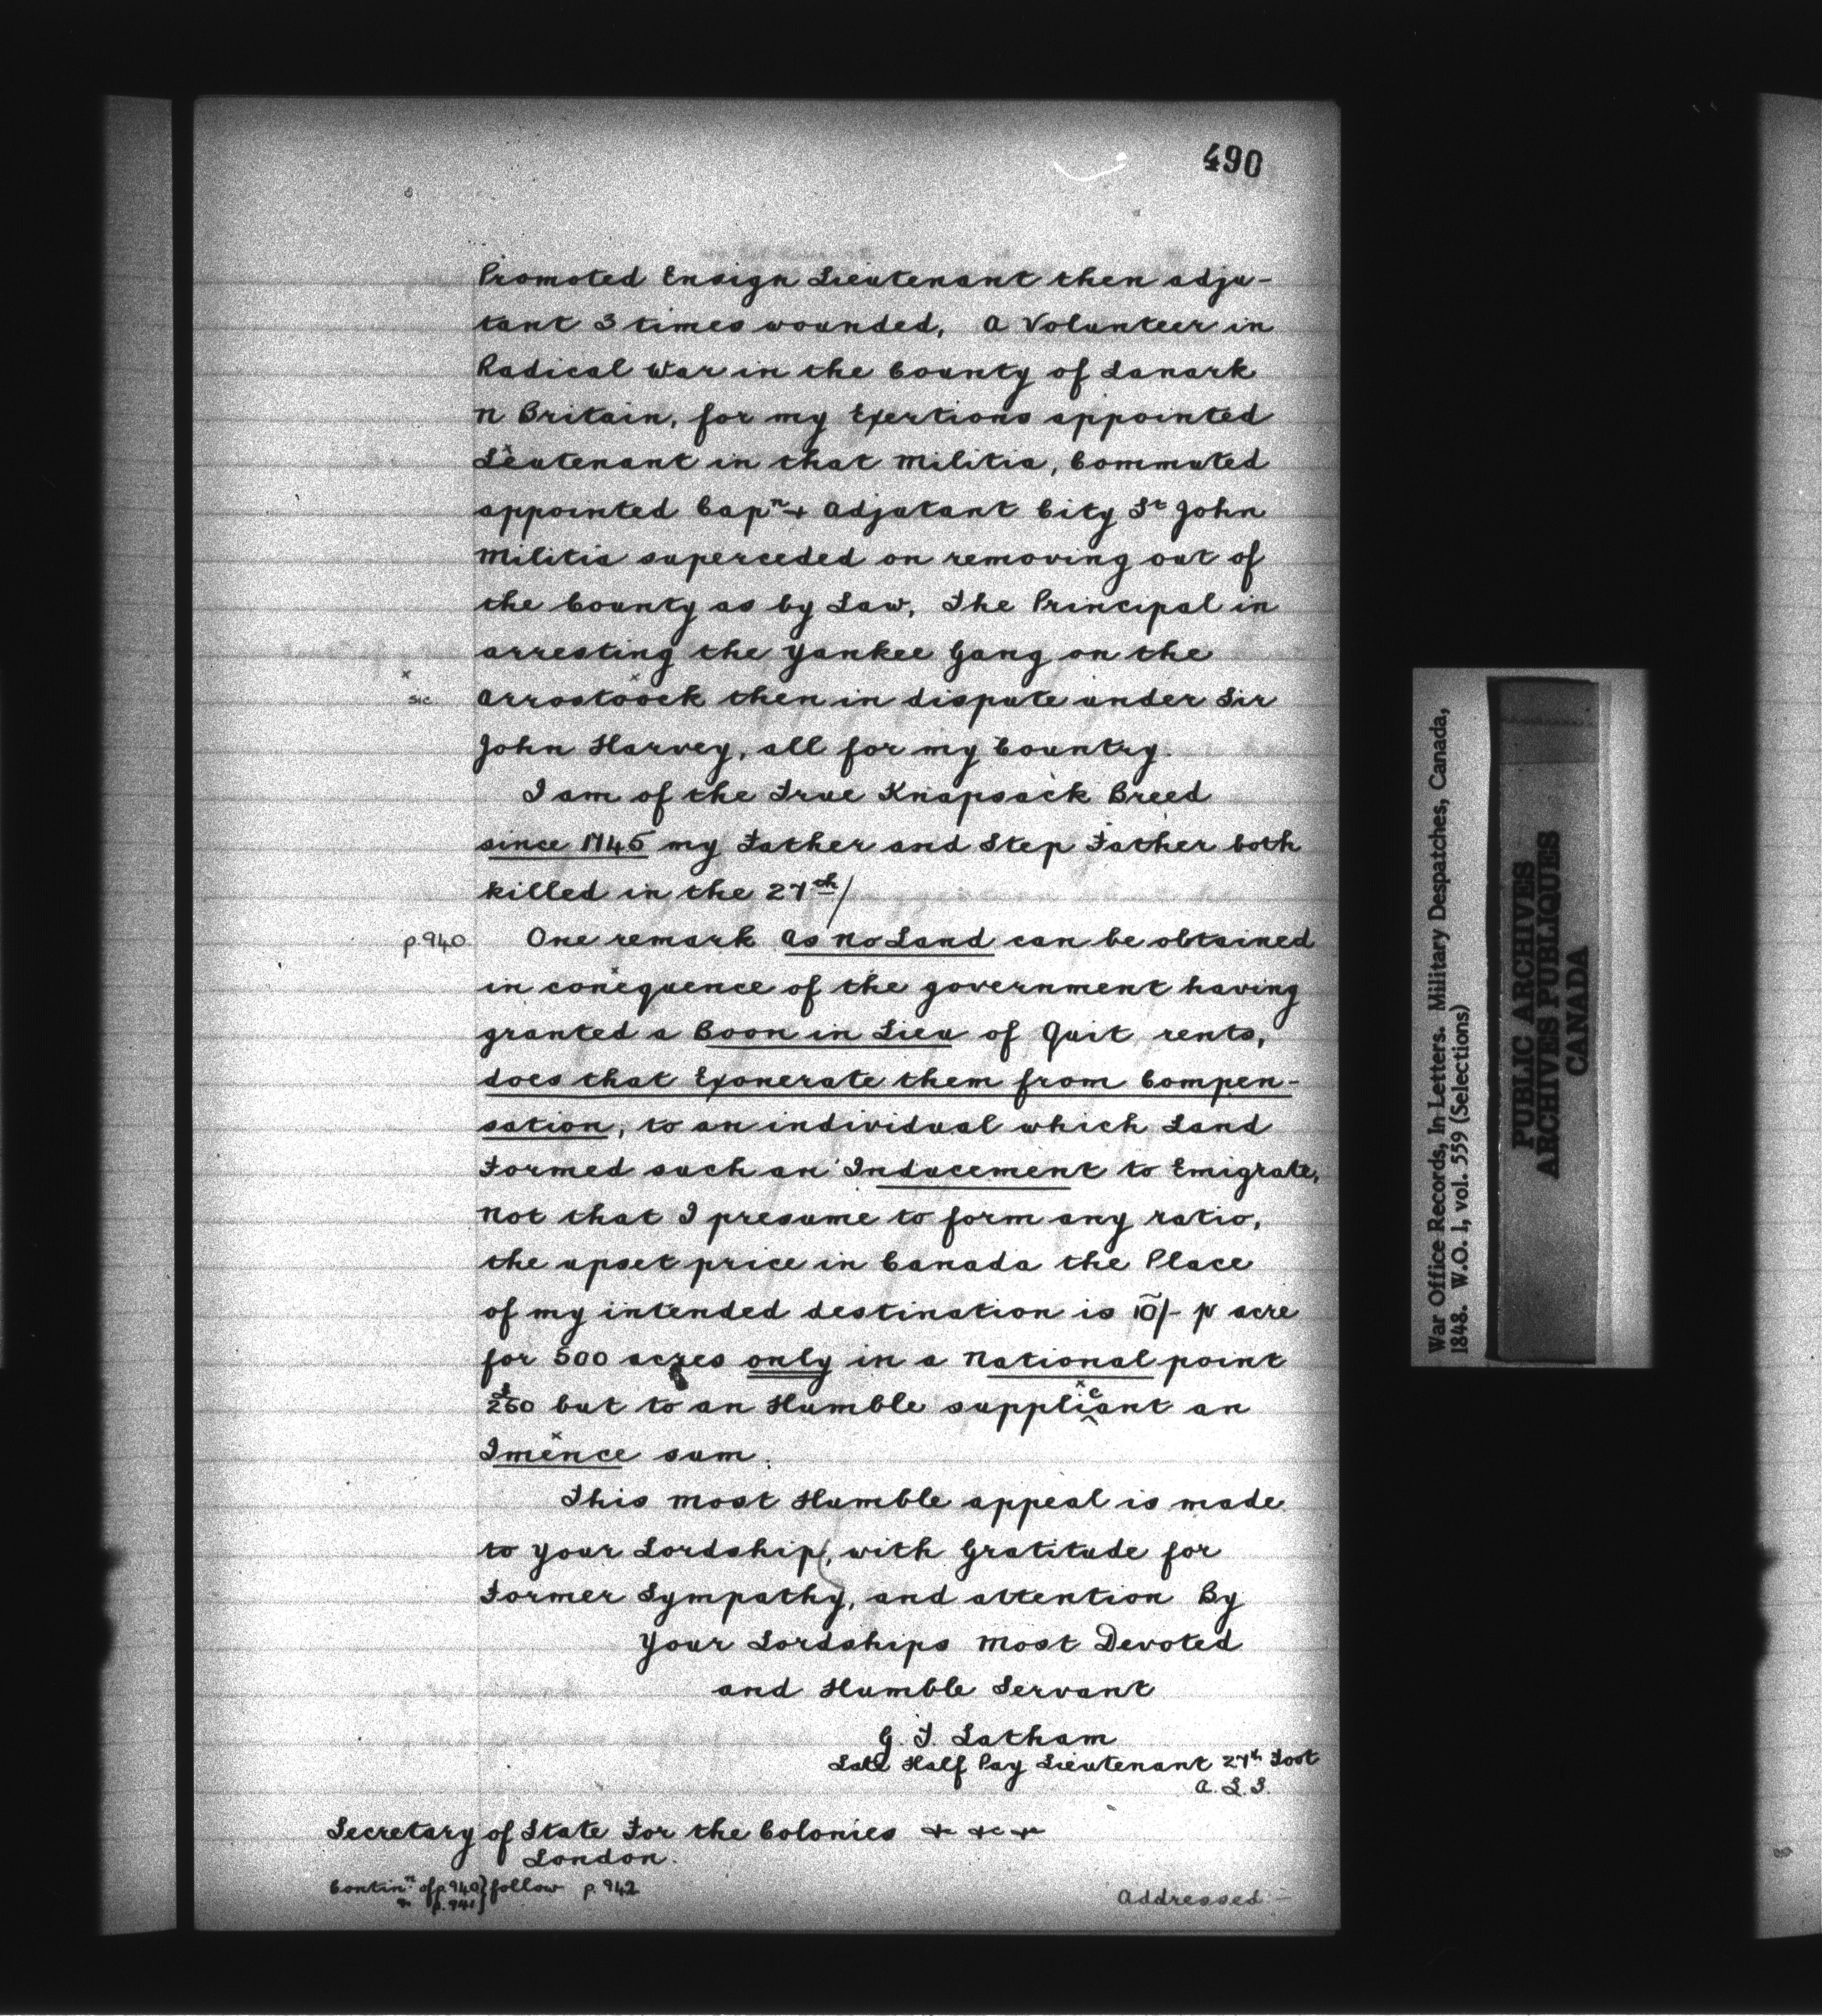 490
Promoted Ensign Lieutenant then adju-
tant 3 times wounded, A Volunteer in
Radical War in the County of Lanark
N Britain, for my Exertions appointed
Leutenant in that Militia, Commuted
appointed Capn & Adjutant City St John
Militia superceded on removing out of
the County as by Law, The Principal in
arresting the Yankee Gang on the
x
sic Arrostoock then in dispute under Sir
John Harvey, all for my Country.
I am of the True Knapsack Breed
since 1745 my Father and Step Father both
killed in the 27th/
p.940 One remark As No Land can be obtained
in conequence of the government having
granted a Boon in Lieu of Quit rents,
does that Exonerate them from Compen-
sation, to an individual which Land
Formed such an Inducement to Emigrate,
Not that I presume to form any ratio,
the upset price in Canada the Place
of my intended destination is 10/- pr acre
for 500 acres only in a National point
£250 but to an Humble supplicant an
Imence sum.
This most Humble appeal is made
to your Lordship, with Gratitude for
Former Sympathy, and attention By
Your Lordships Most Devoted
and Humble Servant
G. F. Latham
Late Half Pay Lieutenant 27th Foot
A.L.S.
Secretary of State For the Colonies & & &
London.
Contin.n of p.940 } follow p. 942
" p.941 }
Addressed -
War Office Records, In-Letters. Military Despatches, Canada,
1848. W.O. 1, vol. 559 (Selections)
PUBLIC ARCHIVES
ARCHIVES PUBLIQUES
CANADA